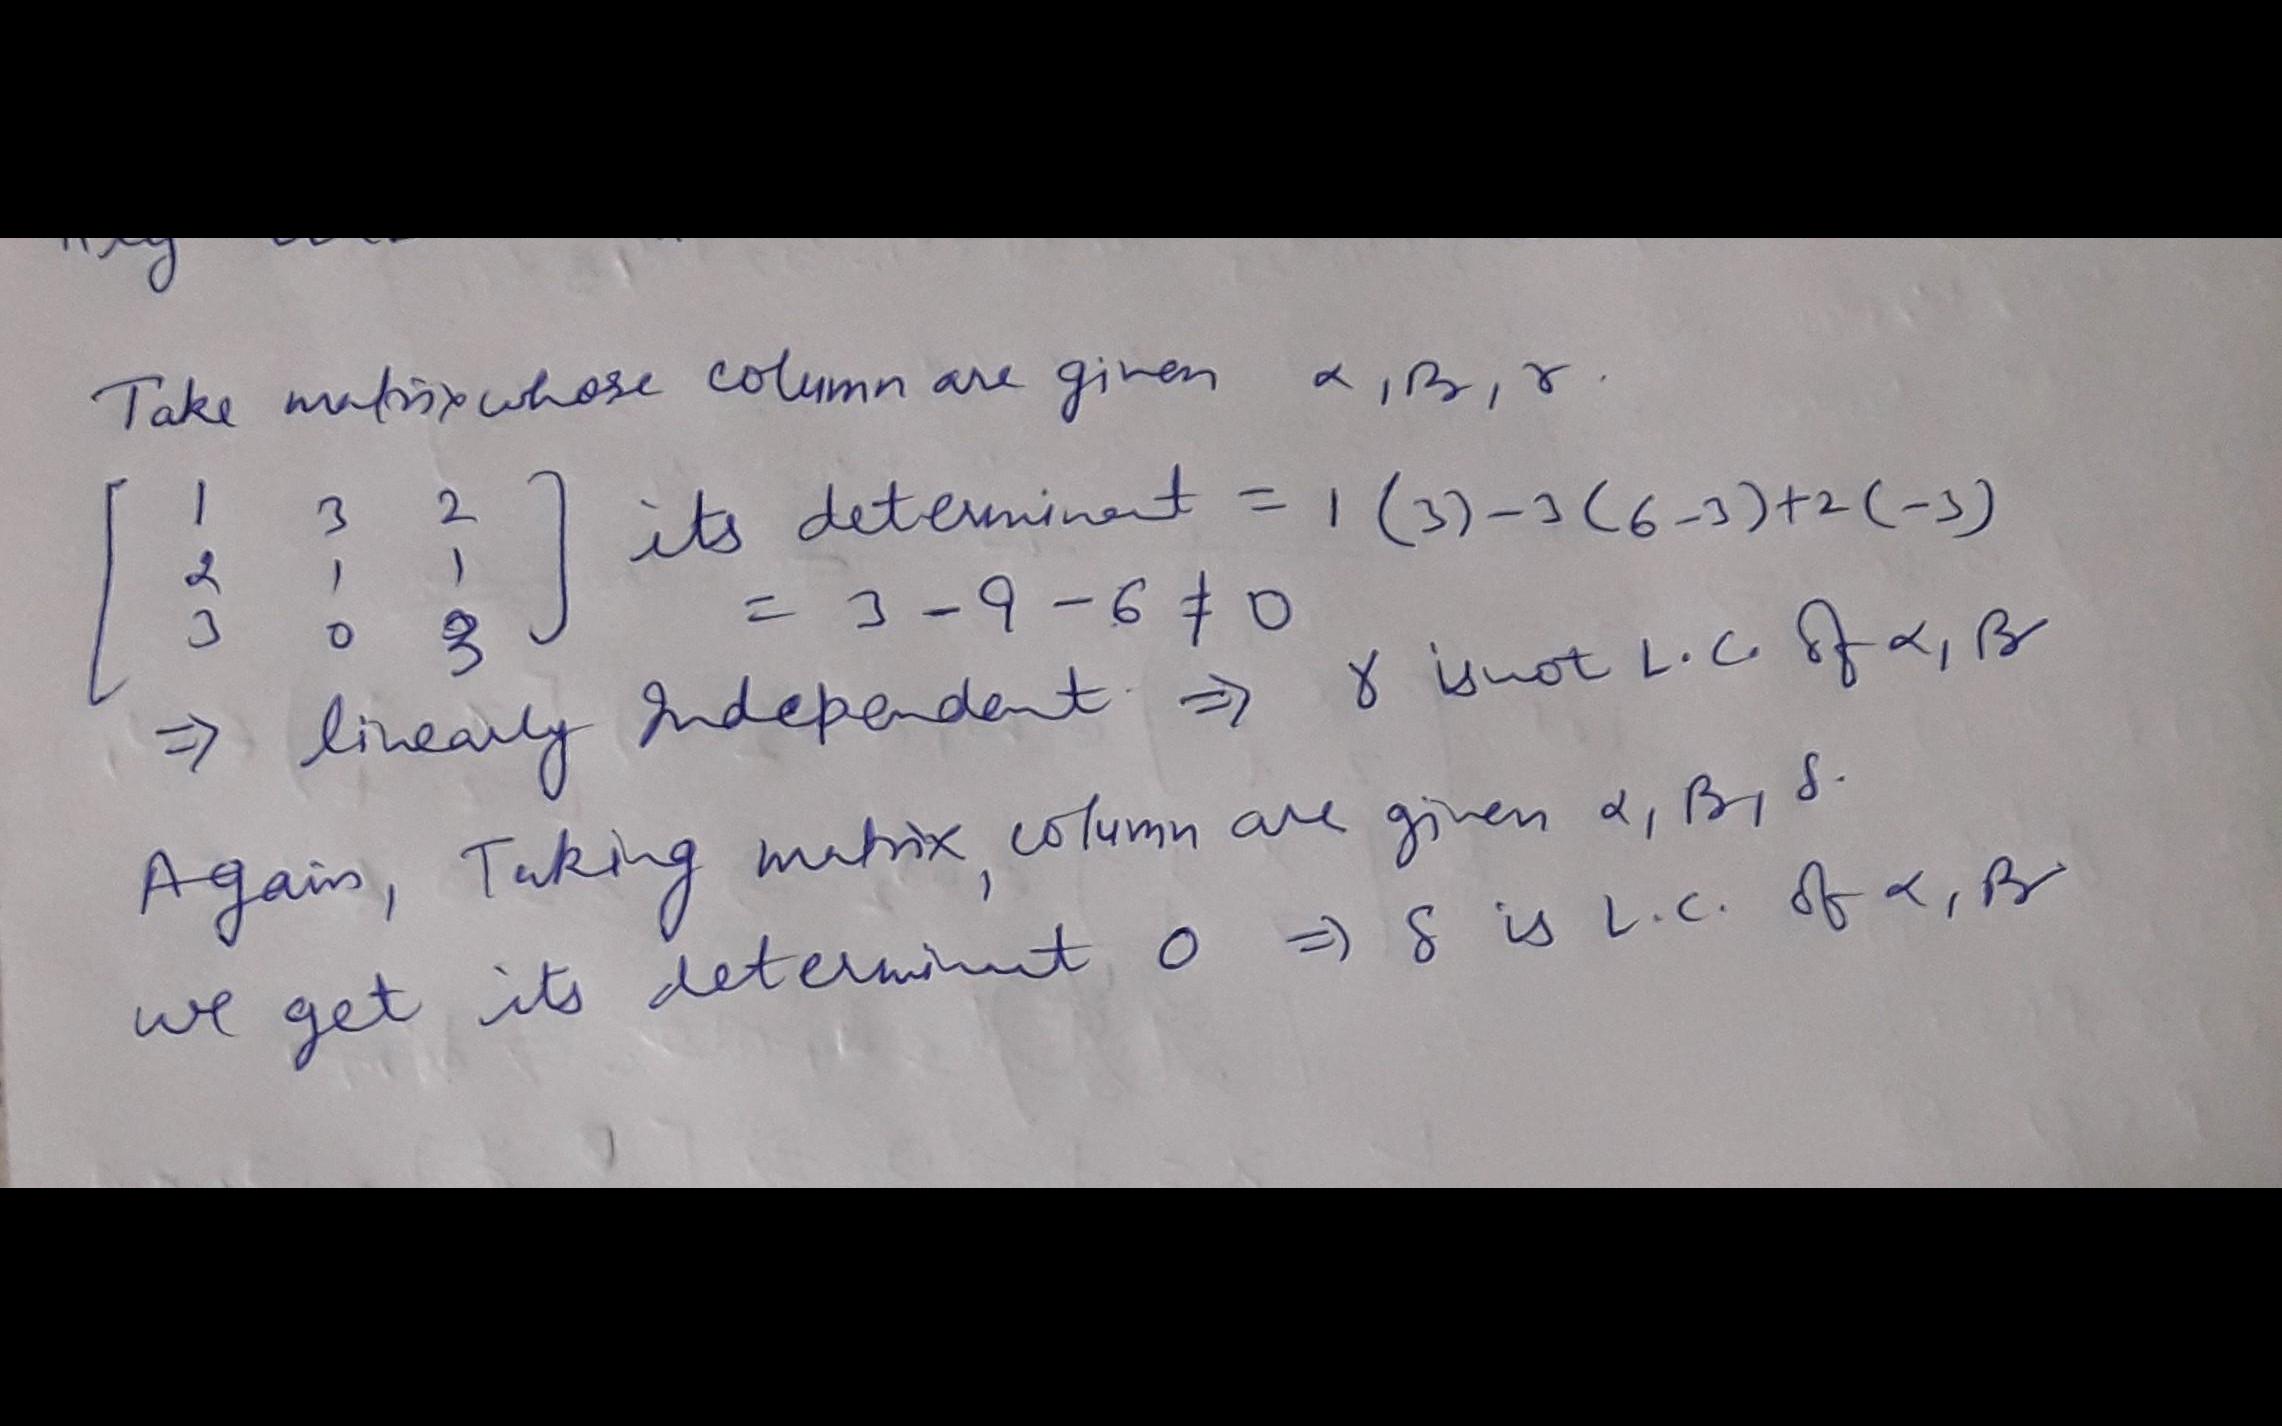 Take matrix whose column are given α, B, γ.
[ 1 3 2 ] its determinent = 1 (3) - 3 (6-3) + 2 (-3)
2 1 1 = 3 - 9 - 6 ≠ 0
3 0 3
⇒ linearly Independent ⇒ γ is not L.C. of α, B
Again, Taking matrix, column are given α, B, δ.
we get its determinent 0 ⇒ δ is L.C. of α, B